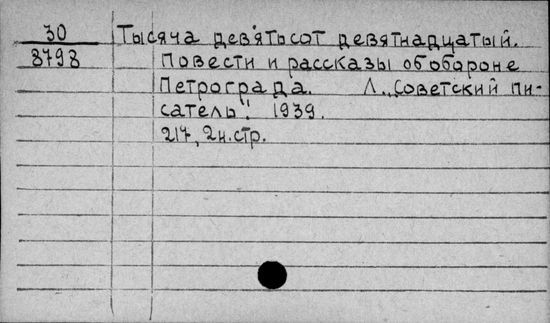 30 Тысяча девятьсот девятнадцатый.
8798 Повести и рассказы об обороне
Петрограда. Л., „Советский пи-
сатель". 1939.
217, 2н.стр.